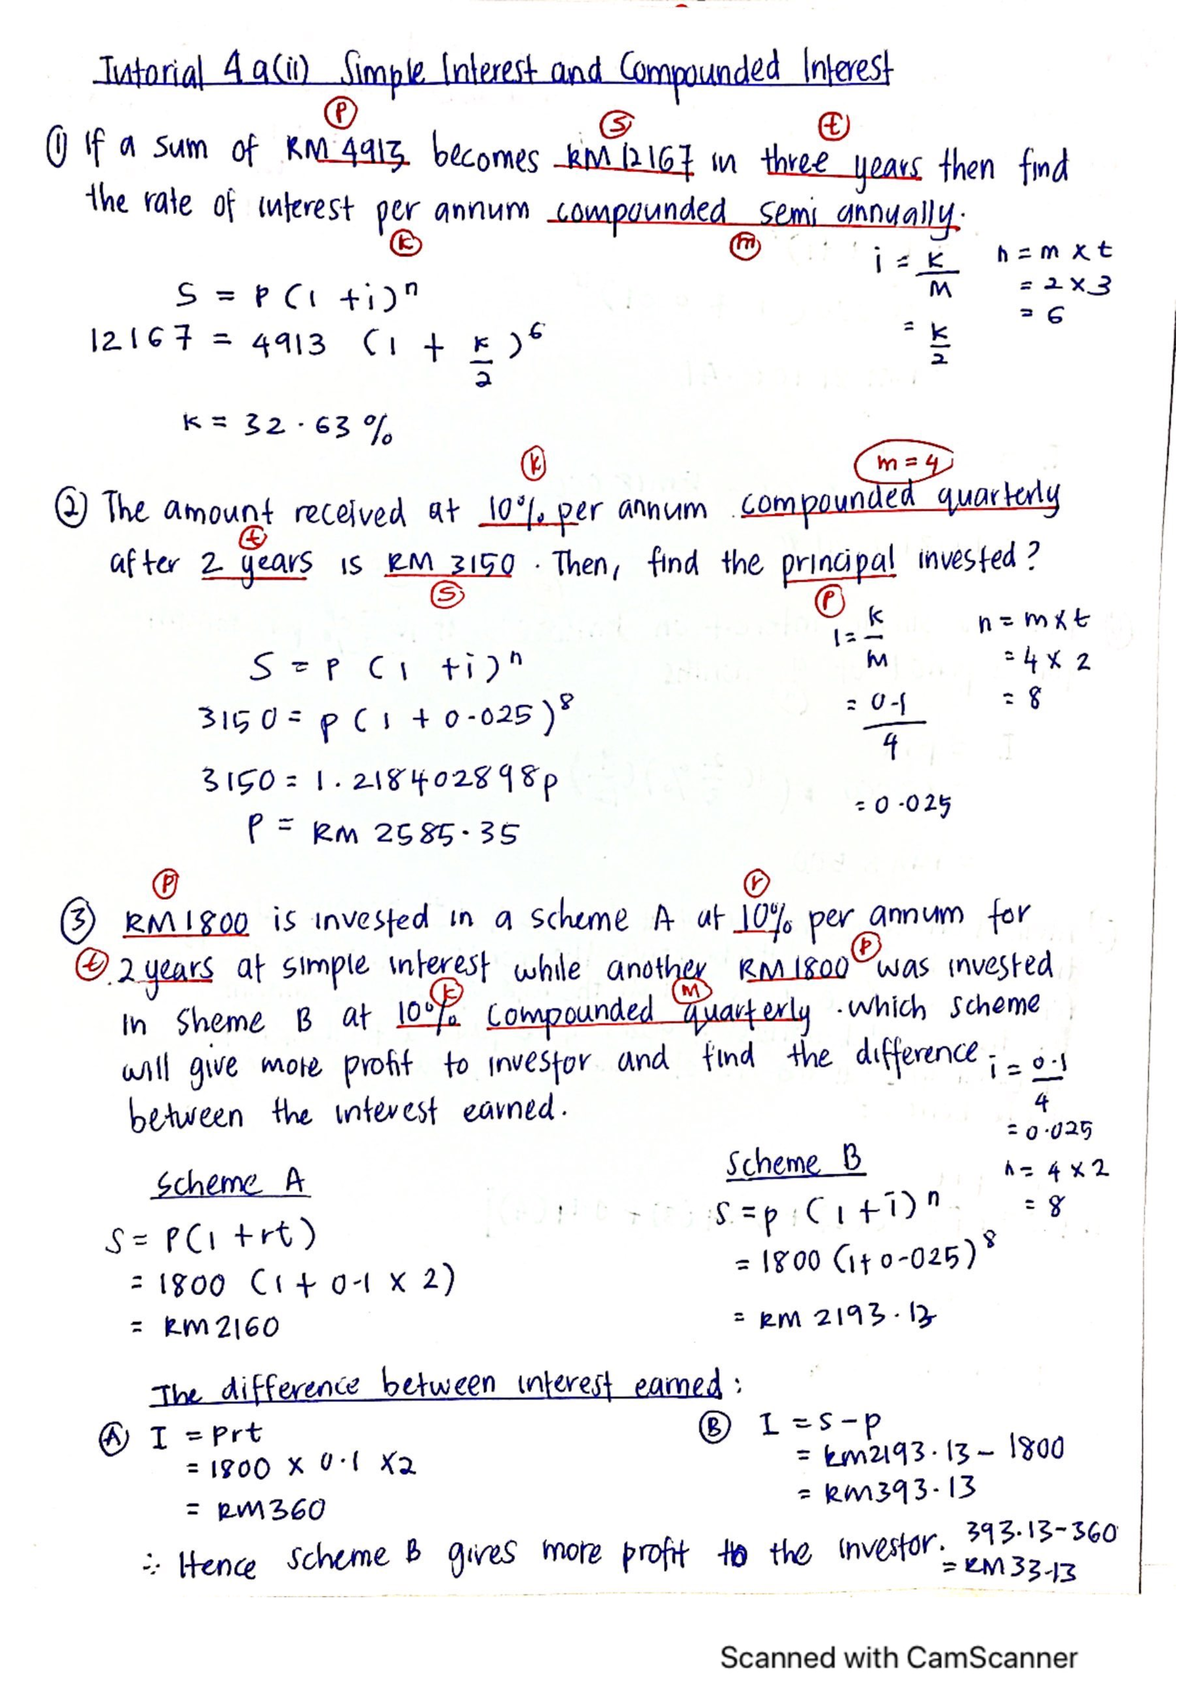 Tutorial 4a(ii) Simple Interest and Compounded Interest
P S t
① If a sum of RM 4913 becomes RM 12167 in three years then find
the rate of interest per annum compounded semi annually.
k m
i = k/M n = m x t
= 2 x 3
= 6
= k/2
S = P (1 + i)ⁿ
12167 = 4913 (1 + k/2)⁶
k = 32.63 %
k m = 4
② The amount received at 10% per annum compounded quarterly
t
after 2 years is RM 3150. Then, find the principal invested?
S P
i = k/M n = m x t
= 4 x 2
= 0.1/4 = 8
= 0.025
S = P (1 + i)ⁿ
3150 = P (1 + 0.025)⁸
3150 = 1.218402898p
P = RM 2585.35
P r
③ RM 1800 is invested in a scheme A at 10% per annum for
t P
2 years at simple interest while another RM 1800 was invested
k M
in Sheme B at 10% compounded quarterly. which scheme
will give more profit to investor and find the difference
between the interest earned.
i = 0.1/4
= 0.025
n = 4 x 2
= 8
Scheme A
S = P(1 + rt)
= 1800 (1 + 0.1 x 2)
= RM 2160
Scheme B
S = p (1 + i)ⁿ
= 1800 (1 + 0.025)⁸
= RM 2193.13
The difference between interest earned :
Ⓐ I = prt
= 1800 x 0.1 x 2
= RM 360
Ⓑ I = S - P
= RM2193.13 - 1800
= RM393.13
∴ Hence scheme B gives more profit to the investor.
393.13 - 360
= RM 33.13
Scanned with CamScanner